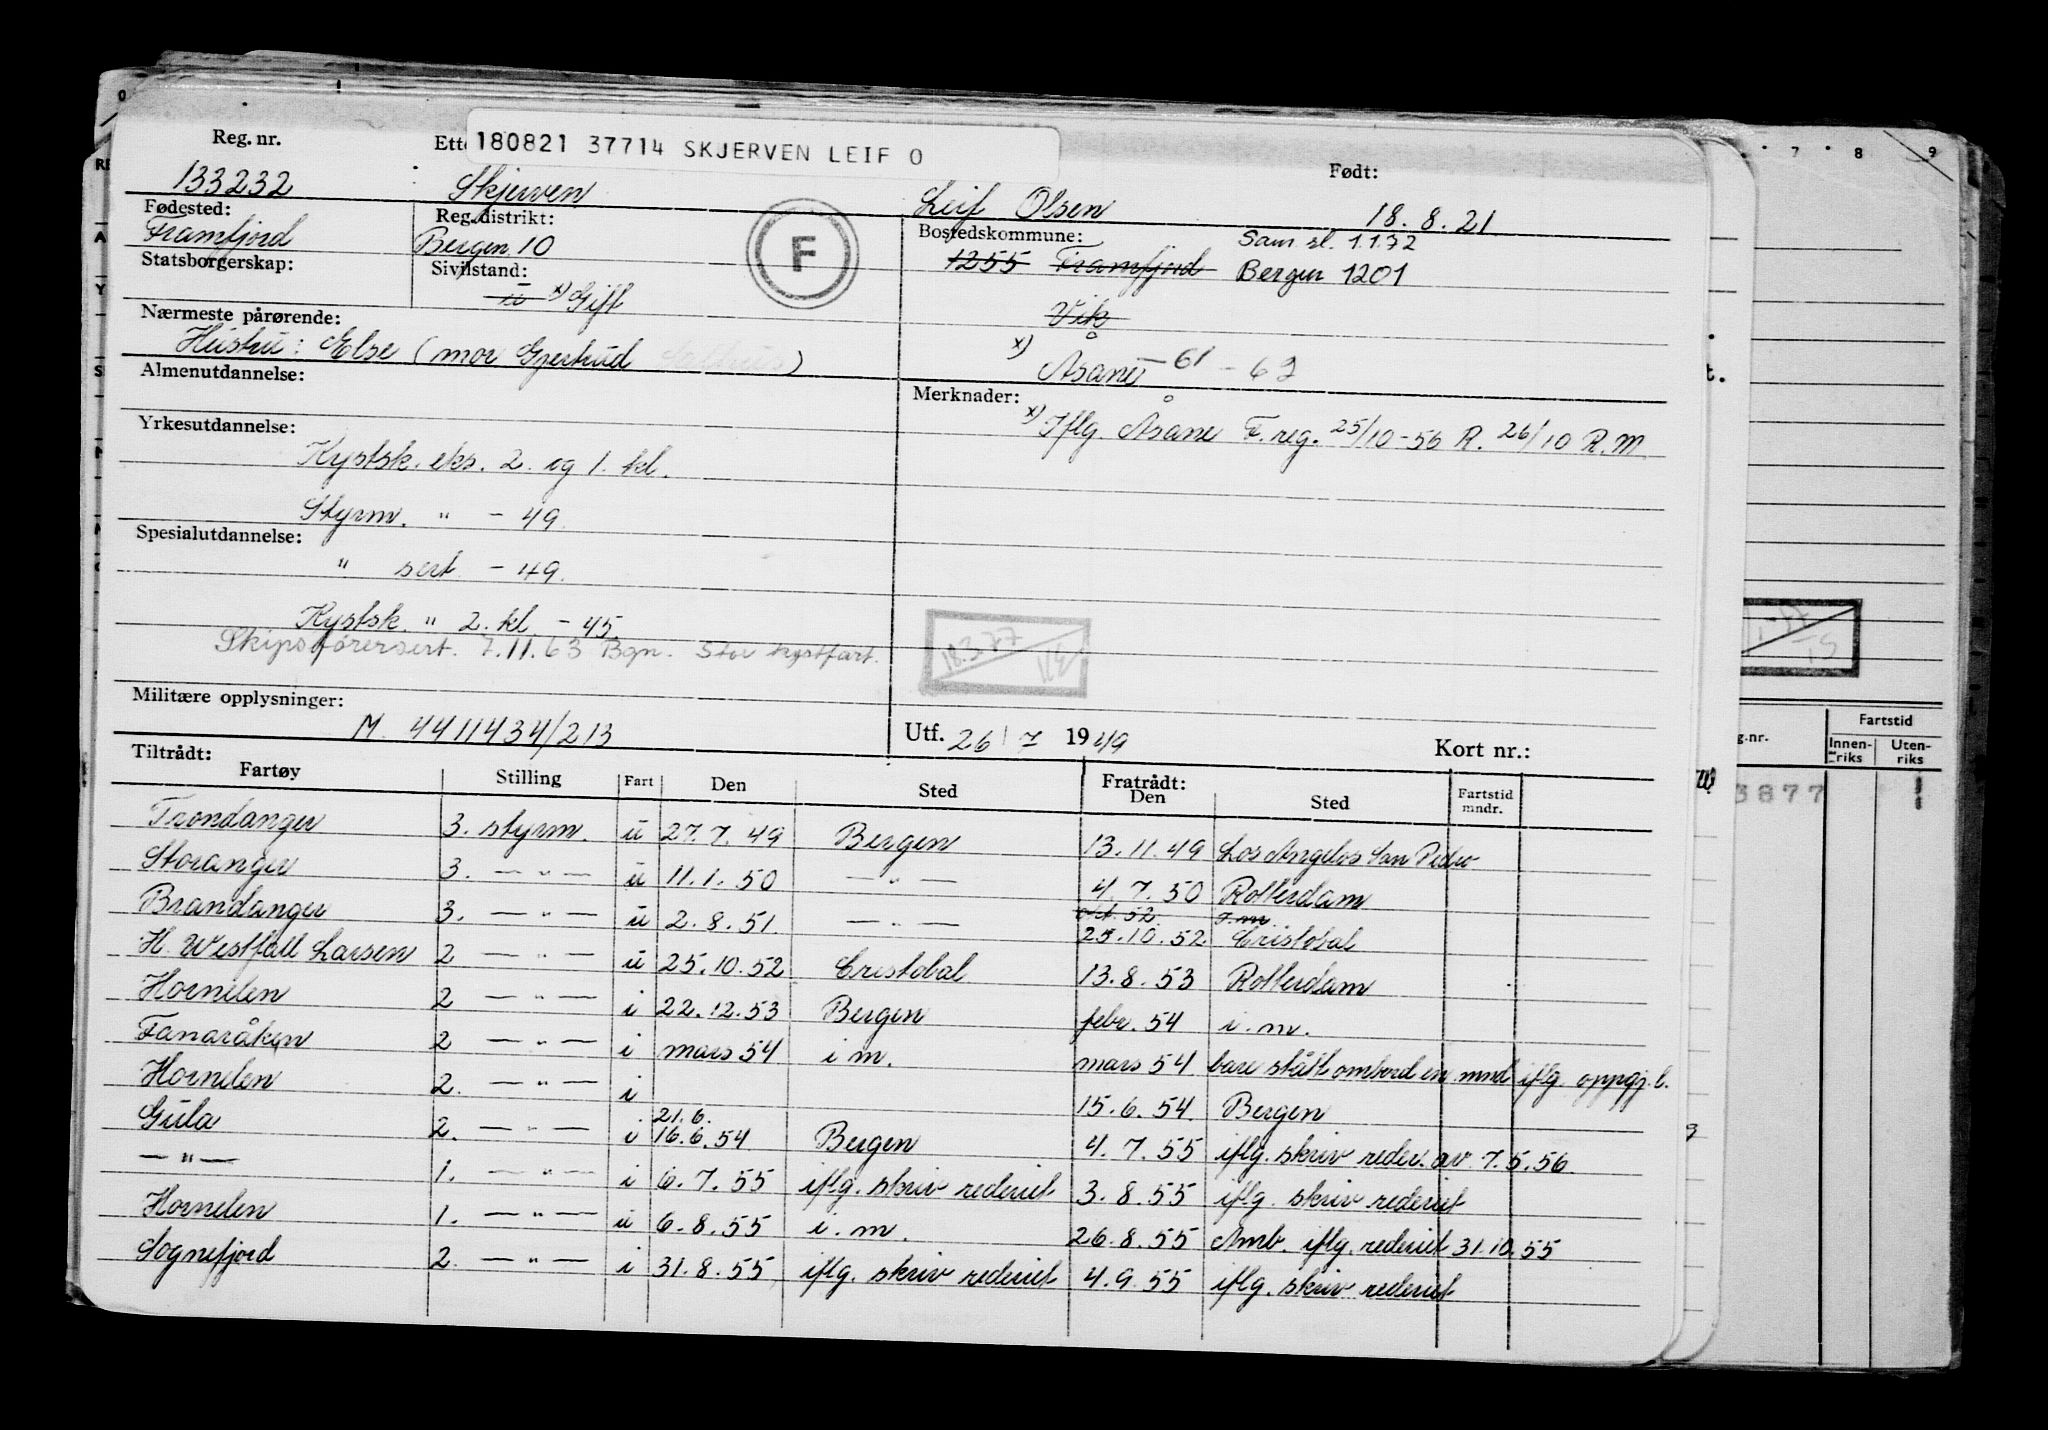 180821 37714 SKJERVEN LEIF O
Reg. nr. Ette Født:
133232 Skjerven Leif Olsen 18.8.21
Fødested: Reg.distrikt: Bostedskommune:
Framfjord Bergen 10 1255 Framfjord Sam sl. 1.1.72
Bergen 1201
Statsborgerskap: Sivilstand:
u x) Gift F Vik
Nærmeste pårørende:
Hustru: Else (mor Gjertrud ) x) Åsane -61 - 62
Almenutdannelse: Merknader:
x) Iflg. Åsane F. reg. 25/10-56 R. 26/10 R.M.
Yrkesutdannelse:
Kystsk. eks. 2. og 1. kl.
Styrm. " - 49.
Spesialutdannelse:
" sert - 49.
Kystsk. " 2. kl. - 45.
Skipsførersert. 7.11.63 Bgn. Stor kystfart.
18.3.77
Militære opplysninger:
M. 4411434/213 Utf. 26/7 1949 Kort nr.:
Tiltrådt: Fratrådt:
Fartøy Stilling Fart Den Sted Den Sted Fartstid mndr.
Trondanger 3. styrm. u 27.7.49 Bergen 13.11.49 Los Angelos San Pedro
Storanger 3. — " — u 11.1.50 — " — 4.7.50 Rotterdam
Brandanger 3. — " — u 2.8.51 — " — okt. 52 i.m.
25.10.52 Cristobal
H. Westfall Larsen 2 — " — u 25.10.52 Cristobal 13.8.53 Rotterdam
Hornelen 2 — " — i 22.12.53 Bergen febr. 54 i.m.
Fanaråken 2 — " — i mars 54 i m. mars 54 bare stått ombord en mnd iflg. oppgj.l.
Hornelen 2. — " — i 15.6.54 Bergen
21.6.
Gula 2. — " — i 16.6.54 Bergen 4.7.55 iflg. skriv reder. av 7.5.56
— " — 1. — " — i 6.7.55 iflg. skriv rederiet 3.8.55 iflg. skriv rederiet
Hornelen 1. — " — u 6.8.55 i.m. 26.8.55 Amb. iflg. rederiet 31.10.55
Sognefjord 2. — " — i 31.8.55 iflg. skriv rederiet 4.9.55 iflg. skriv rederiet
7 8 9
g.nr. Fartstid
Innenriks Utenriks
3877